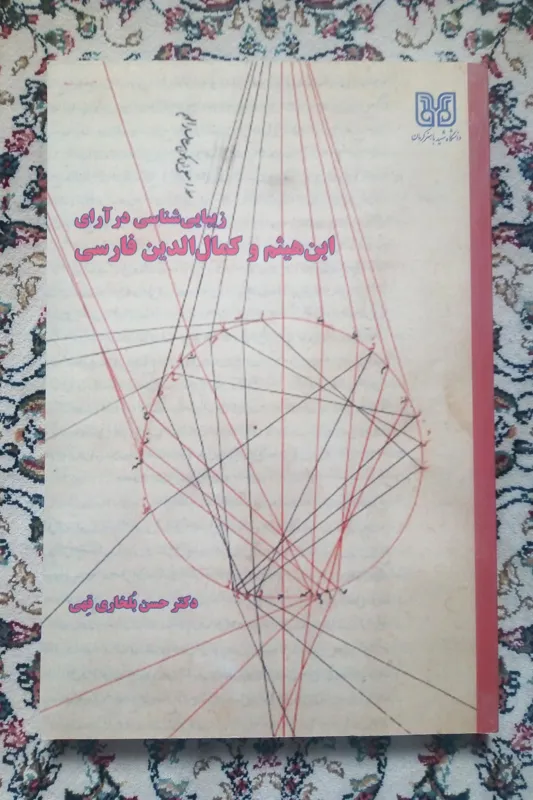 دانشگاه شهید باهنر کرمان
زیبایی‌شناسی در آرای
ابن‌هیثم و کمال‌الدین فارسی
دکتر حسن بُلخاری قِهی